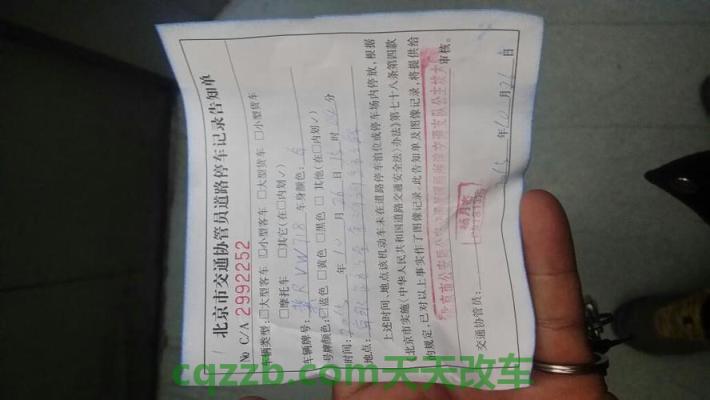 北京市交通协管员道路停车记录告知单
No C/A 2992252
车辆类型:□大型客车 □小型客车 □大型货车 □小型货车
□摩托车 □其它(在□内划✓)
车辆牌号: RVW718 车身颜色:
号牌颜色:☑蓝色 □黄色 □黑色 □其他(在□内划✓)
时间: 年 10 月 26 日 时 分
地点:
上述时间、地点该机动车未在道路停车泊位或停车场内停放,根据
《北京市实施〈中华人民共和国道路交通安全法〉办法》第七十八条第四款
的规定,已对以上事实作了图像记录,此告知单及图像记录,将提供给
审核。
交通协管员:
年 10 月 26 日
cqzzb.com天天改车